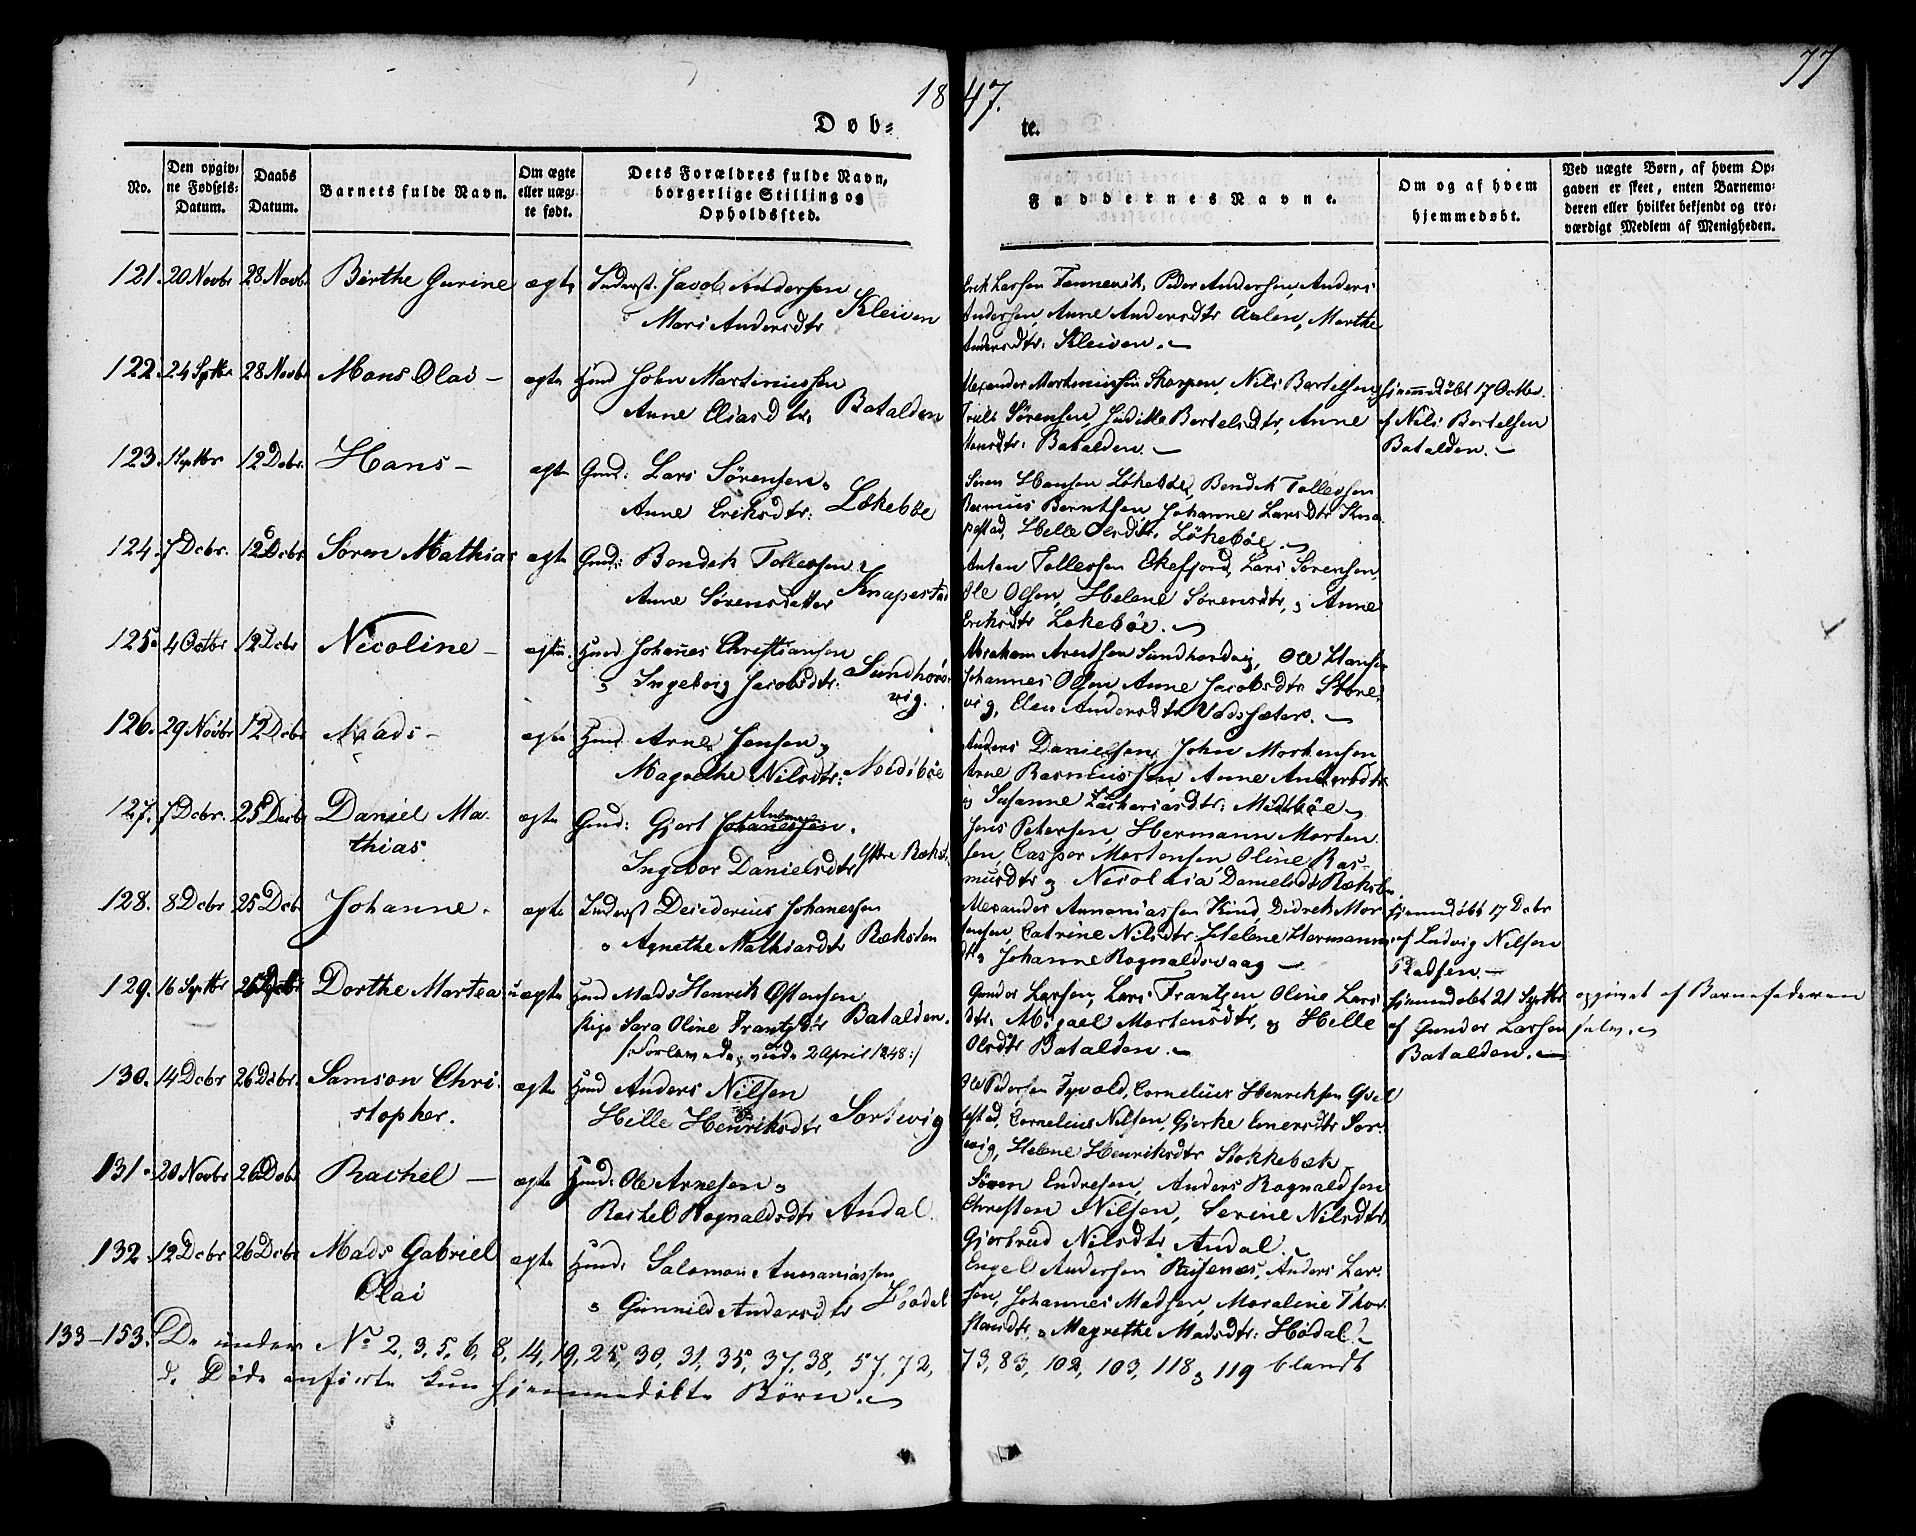 77
18 47.
Døb- te.
No.
Den opgiv-
ne Fødsels-
Datum.
Daabs
Datum.
Barnets fulde Navn.
Om ægte
eller uæg-
te født.
Dets Forældres fulde Navn,
borgerlige Stilling og
Opholdssted.
Faddernes Navne.
Om og af hvem
hjemmedøbt.
Ved uægte Børn, af hvem Op-
gaven er skeet, enten Barnemo-
deren eller hvilket bekjendt og tro-
værdigt Medlem af Menigheden.
121. 20 Novbr 28 Novbr Birthe Gurine ægte Inderst. Jacob Andersen
Mari Andersdtr Kleiven
Erik Larsen Tennevik, Peder Andersen, Anders
Andersen, Anne Andersdtr Aalen, Marthe
Andersdtr: Kleiven.
122. 24 Septbr 28 Novbr Mons Olai - ægte Huusd John Martinussen
Anne Eliasdtr. Batalden
Alexander Martinussen Skorpen, Nils Bertelsen
Sørensen, Judithe Bertelsdtr, Anne
Monsdtr: Batalden.
Hjemmedøbt 17 Octbr.
af Nils Bertelsen
Batalden.
123. Septbr 12 Decbr. Hans - ægte Gmd: Lars Sørensen
Anne Eriksdtr: Løkebøe
Søren Hansen Løkebøe, Bendik Tollessen
Rasmus Berntsen, Johanne Larsdtr Kna-
pestad, Helle Olsdtr. Løkebøe.
124. 7 Decbr. 12 Decbr Søren Mathias ægte Gmd: Bendik Tollessen
Anne Sørensdatter Knapestad
Anten Tollessen Ekefjord, Lars Sørensen,
Ole Olsen, Helene Sørensdtr, Anne
Eriksdtr Løkebøe.
125. 4 Octbr 12 Decbr Nicoline - ægte. Huusd Johanes Christiansen
Ingeborg Jacobsdtr: Sundhord-
vig.
Abraham Arentsen Sundhordvig, Ole Hansen
Johannes Olsen, Anne Jacobsdtr Store-
vig, Elen Andersdtr Vadsæter.
126. 29 Novbr 12 Decbr Mads - ægte Huusd Arne Jensen
Magrethe Nilsdtr: Midtbøe
Anders Danielsen, John Mortensen
Arne Rasmussen, Anne Andersdtr
Susanne Zachariasdtr: Midtbøe
127. 7 Decbr. 25 Decbr Daniel Ma-
thias ægte Gmd: Gjert Johanessen
Ingebor Danielsdtr Yttre Rækst.
Jens Petersen, Hermann Morten-
sen, Casper Mortensen, Oline Ras-
musdtr Nicolaia Danielsdtr Ræksten
128. 8 Decbr 25 Decbr Johanne. ægte Inderst Desiderius Johanessen
Agnethe Mathiasdtr Ræksten
Alexander Annaniassen Kind, Didrek Mor-
tensen, Catrine Nilsdtr. Helene Hermans
dtr Johanne Rognaldsvaag
Hjemmdøbt 17 Decbr
af Ludvig Nilsen
129. 16 Septbr Dorthe Martea uægte Huusd Mads Henrik Østensen
Pige Sara Oline Frantzdtr Batalden.
/:Forlovede, viede 2 April 1848:/
Gunder Larsen, Lars Frantzen, Oline Lars
dtr. Migael Mortensdtr, Helle
Olsdtr Batalden.
hjemmedøbt 21 Septbr
af Gunder Larsen
Batalden.
opgivet af Barnefaderen
selv.
130. 14 Decbr 26 Decbr. Samson Chri-
stopher. ægte Huusd Anders Nilsen
Hille Henriksdtr Sortevig
Ole Pedersen Tyvold, Cornelius Henriksen
Cornelius Nilsen, Gjerke Emersdtr Sor-
tevig, Helene Henriksdtr Stokkebæk
131. 20 Novbr 26 Decbr Rachel - ægte Huusd: Ole Arnesen
Rachel Rognaldsdtr Andal.
Søren Endresen, Anders Rognaldsen
Christen Nilsen, Serine Nilsdtr,
Gjertrud Nilsdtr Andal.
132. 12 Decbr 26 Decbr Mads Gabriel
Olai ægte Huusd: Salomon Annaniassen
Gunnild Andersdtr Hødal
Engel Andersen Risenæs, Anders Lar-
sen, Johannes Madsen, Maraline Thor-
Magrethe Madsdtr: Hødal
133-153. De under No 2, 3, 5, 6, 8, 14, 19, 25, 30, 31, 35, 37, 38, 57, 72, 73, 83, 102, 103, 118 119 blandt
d. Døde anførte kun hjemmedøbte Børn.